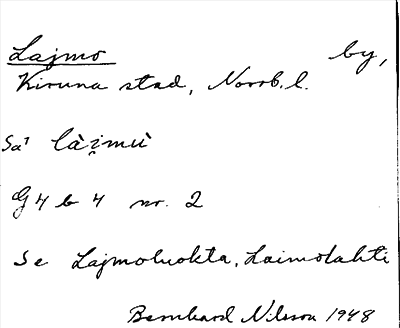 Lajmo by,
Kiruna stad, Norrb. l.
Sa¹ là̀i̯mù
G 4 b 4 nr. 2
Se Lajmoluokta, Laimolahti
Bernhard Nilsson 1948